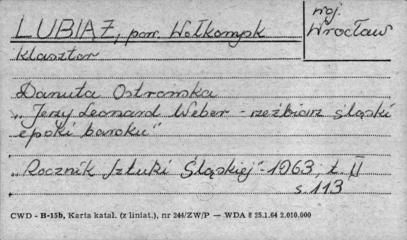 LUBIĄŻ, pow. Wołkompsk
woj. Wrocław
klasztor
Danuta Ostromska
„Jerzy Leonard Weber - rzeźbiarz śląski
epoki baroku"
„Rocznik Sztuki Śląskiej" - 1963, t. II
s. 113
CWD - B-15b, Karta katal. (z liniat.), nr 244/ZW/P — WDA 8 25.1.64 2.010.000